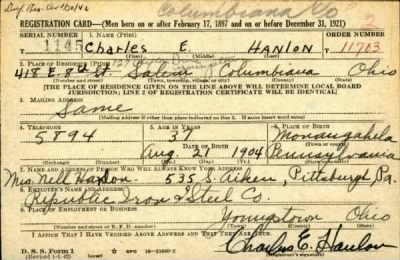 Columbiana Co
REGISTRATION CARD—(Men born on or after February 17, 1897 and on or before December 31, 1921)
SERIAL NUMBER 1. NAME (Print) ORDER NUMBER
1145 Charles E. Hanlon 11703
2. PLACE OF RESIDENCE (Print)
418 E. 8th St. Salem Columbiana Ohio
(Number and street) (Town, township, village, or city) (County) (State)
[THE PLACE OF RESIDENCE GIVEN ON THE LINE ABOVE WILL DETERMINE LOCAL BOARD
JURISDICTION; LINE 2 OF REGISTRATION CERTIFICATE WILL BE IDENTICAL]
3. MAILING ADDRESS
Same
(Mailing address if other than place indicated on line 2. If same insert word same)
4. TELEPHONE 5. AGE IN YEARS 6. PLACE OF BIRTH
5894 37 Monongahela
DATE OF BIRTH (Town or county)
Aug 21 1904 Pennsylvania
(Exchange) (Number) (Mo.) (Day) (Yr.) (State or country)
7. NAME AND ADDRESS OF PERSON WHO WILL ALWAYS KNOW YOUR ADDRESS
Mrs. Nell Hanlon 535 S. Aiken, Pittsburgh, Pa.
8. EMPLOYER'S NAME AND ADDRESS
Republic Iron & Steel Co.
9. PLACE OF EMPLOYMENT OR BUSINESS
Youngstown Ohio
(Number and street or R. F. D. number) (Town) (County) (State)
I AFFIRM THAT I HAVE VERIFIED ABOVE ANSWERS AND THAT THEY ARE TRUE.
D. S. S. Form 1
(Revised 1-1-42) (over)
Charles E. Hanlon
(Registrant's signature)